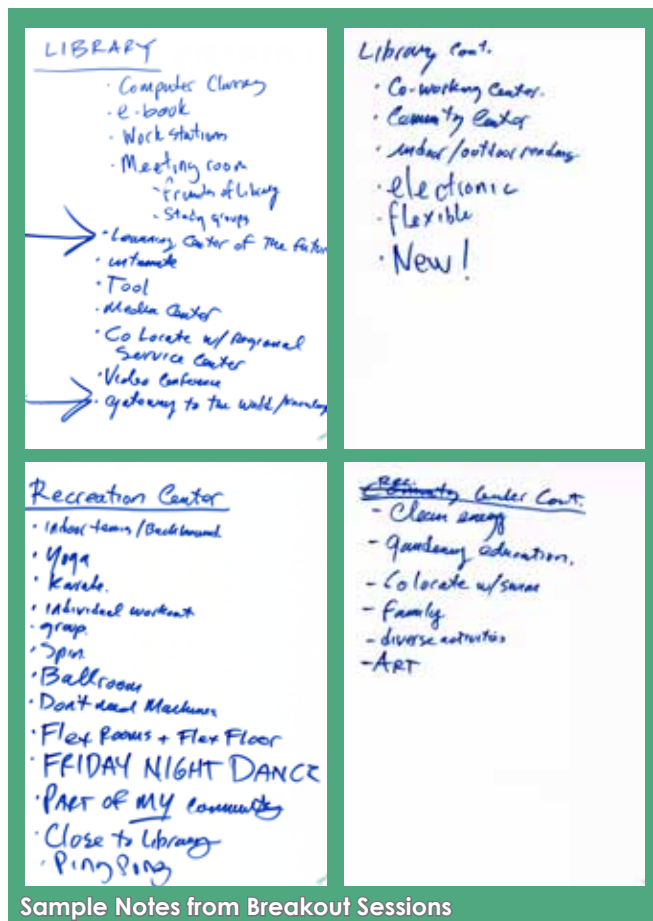 LIBRARY
· Computer Classes
· e-book
· Work stations
· Meeting room
- Friends of Library
- Study groups
· Learning Center of The Future
· intimate
· Tool
· Media Center
· Co Locate w/ Regional
Service Center
· Video Conference
· gateway to the world / knowledge
Library Cont.
· Co-working Center.
· Community Center
· indoor/outdoor reading
· electronic
· flexible
· New!
Recreation Center
· indoor tennis/
· Yoga
· Karate.
· individual workout
· group.
· Spin
· Ballroom
· Don't need Machines
· Flex Rooms + Flex Floor
· FRIDAY NIGHT DANCE
· PART OF MY Community
· Close to Library
· Ping Pong
Rec. Center Cont.
- Clean energy
- gardening education.
- Colocate w/
- Family
- diverse activities
- ART
Sample Notes from Breakout Sessions